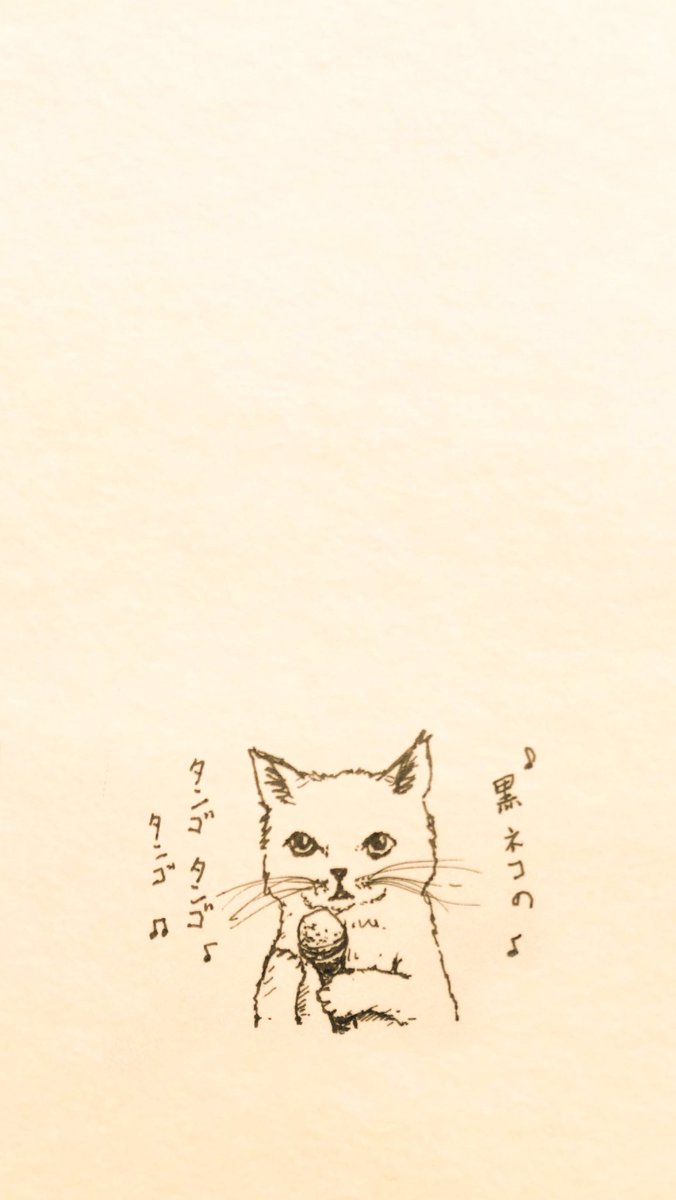 ♪黒ネコの♪
タンゴ タンゴ♪
タンゴ♫